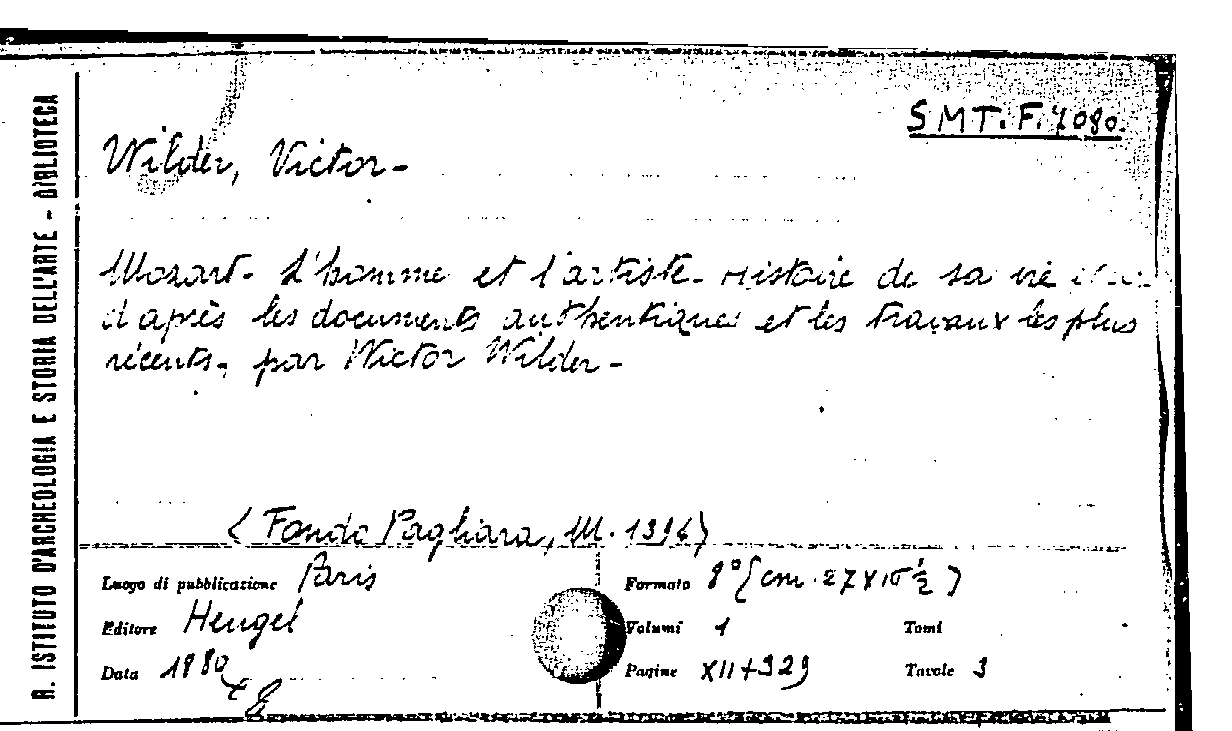 R. ISTITUTO D'ARCHEOLOGIA E STORIA DELL'ARTE - BIBLIOTECA
SMT. F. 7080.
Wilder, Victor -
Mozart - L'homme et l'artiste - Histoire de sa vie
d'après les documents authentiques et les travaux les plus
récents, par Victor Wilder -
(Fondo Pagliara, M. 1396)
Luogo di pubblicazione Paris
Formato 8° (cm. 27 x
Editore Heugel
Volumi 1 Tomi
Data 1880
Pagine XII+329 Tavole 3